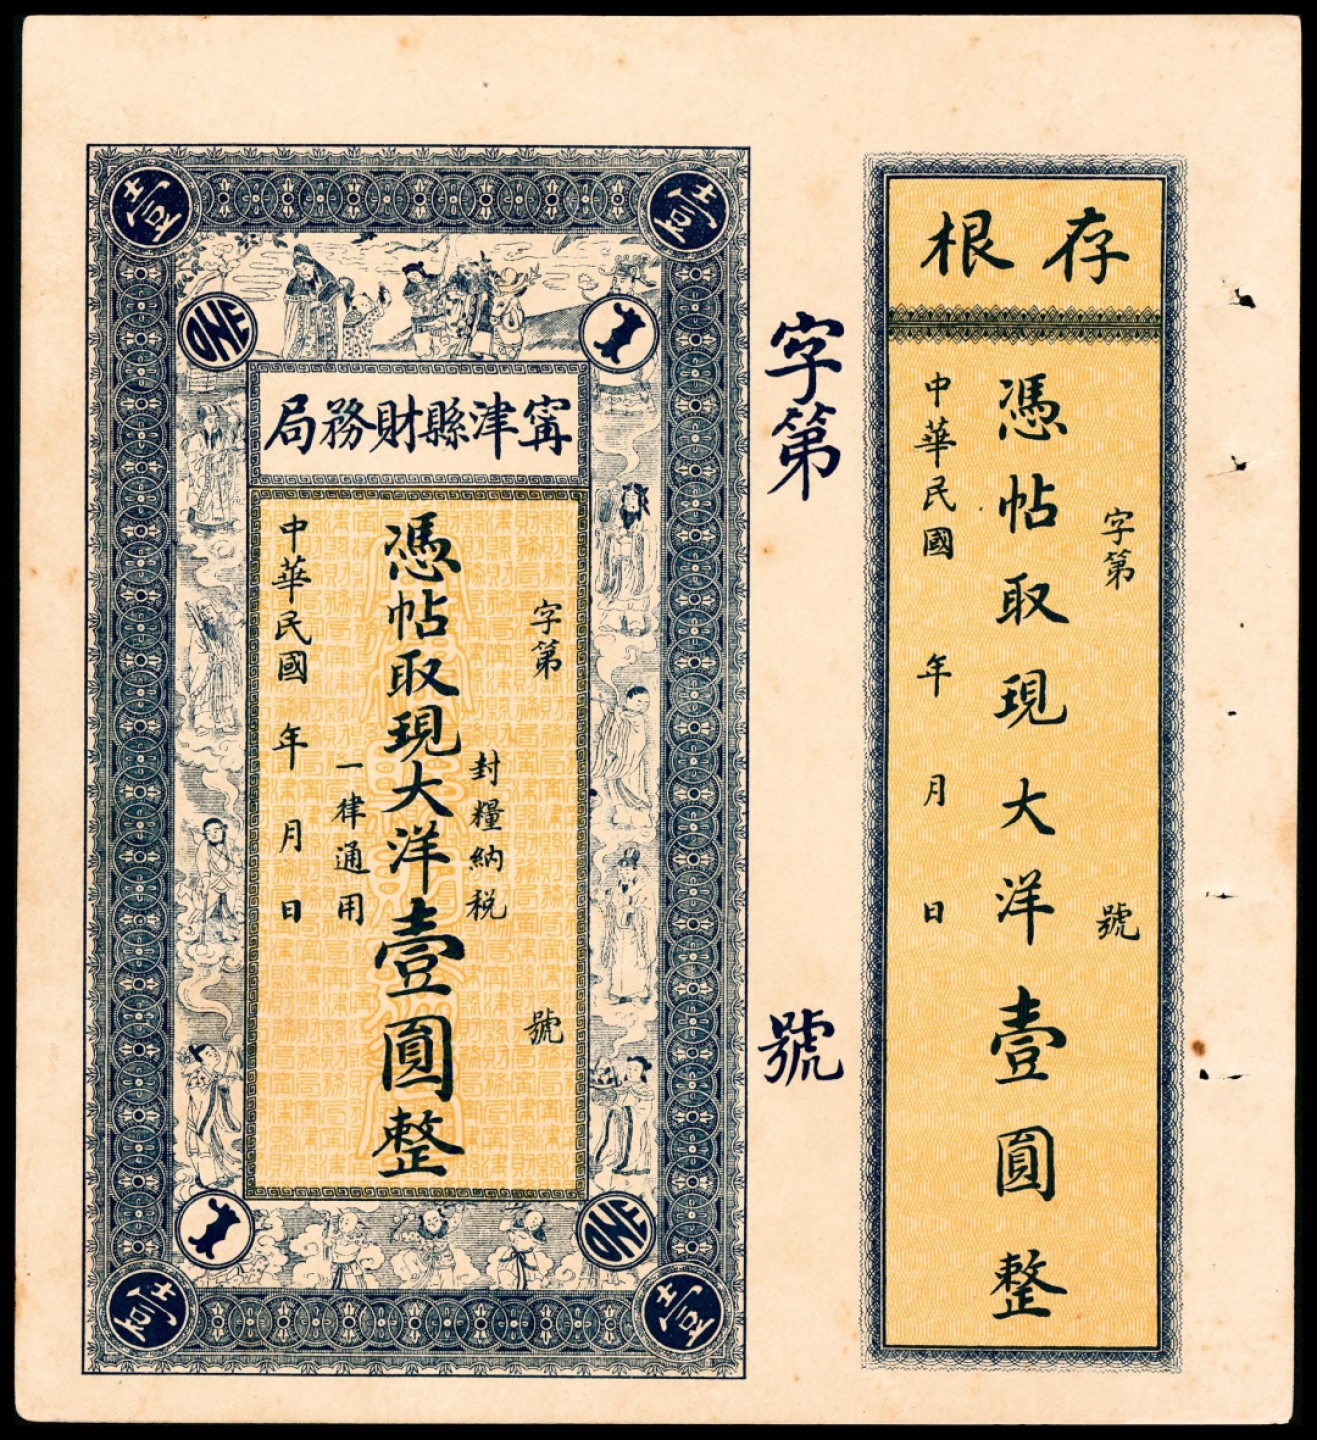 壹
壹
ONE
寧津縣財務局
字第 號
封糧納税
憑帖取現大洋壹圓整
一律通用
中華民國 年 月 日
ONE
壹
壹
字第 號
存根
字第 號
憑帖取現大洋壹圓整
中華民國 年 月 日